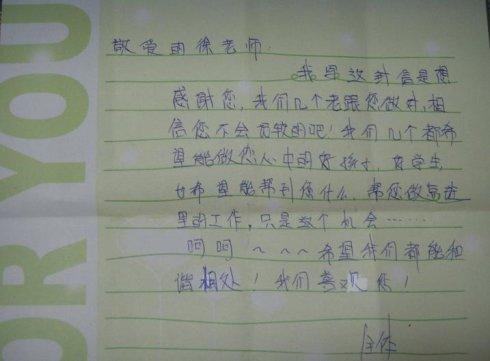 OR YOU
敬爱的徐老师:
我写这封信是想
感谢您,我们几个老跟您做对,相
信您不会介较的吧!我们几个都希
望能做您心中的好孩子,好学生
也希望能帮到您什么,帮您做完这
里的工作,只是这个机会……
呵呵~~~希望我们都能和
谐相处!我们喜欢您!